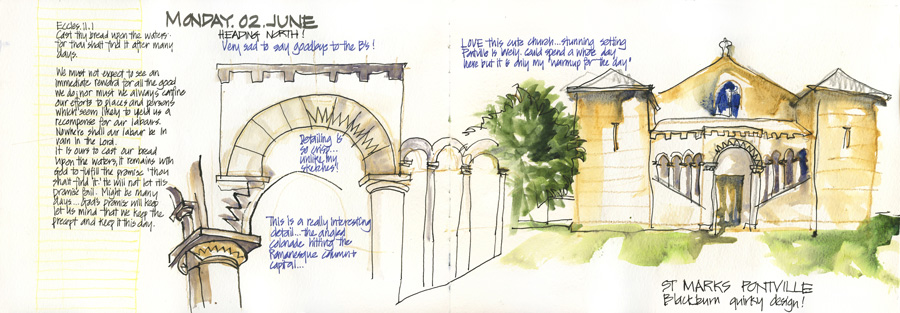 Eccles. 11.1
Cast thy bread upon the waters:
for thou shalt find it after many
days.
We must not expect to see an
immediate reward for all the good
we do nor must we always confine
our efforts to places and persons
which seem likely to yield us a
recompense for our labours.
Nowhere shall our labour be in
vain in the Lord.
It is ours to cast our bread
upon the waters, it remains with
God to fulfill the promise 'thou
shalt find it.' He will not let His
promise fail. Might be many
days... God's promise will keep
let us mind that we keep the
precept and keep it this day.
MONDAY. 02. JUNE
HEADING NORTH!
Very sad to say goodbye to the B's!
Detailing is
so crisp...
unlike my
sketches!
This is a really interesting
detail... the angled
colonade hitting the
Romanesque column +
capital...
LOVE this cute church... stunning setting
Pontville is lovely. Could spend a whole day
here but it is only my "warmup for the day"
ST MARKS PONTVILLE
Blackburn quirky design!